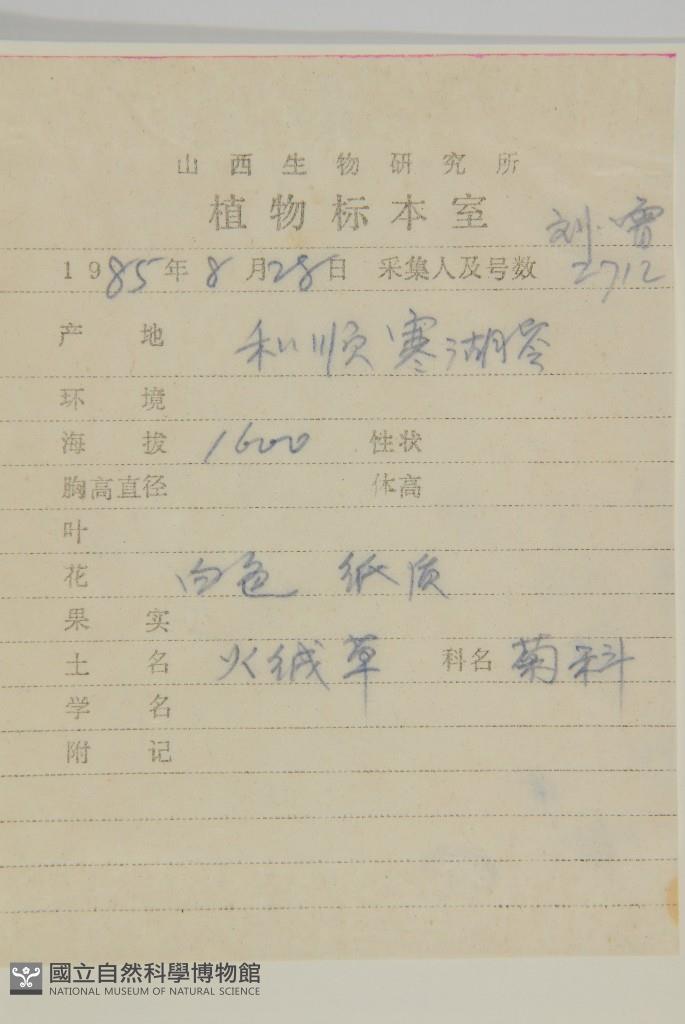 山西生物研究所
植物标本室
刘 曾
1985年8月28日 采集人及号数 2712
产地 和顺寒湖岺
环境
海拔 1600 性状
胸高直径 体高
叶
花 白色 纸质
果实
土名 火绒草 科名 菊科
学名
附记
國立自然科學博物館
NATIONAL MUSEUM OF NATURAL SCIENCE